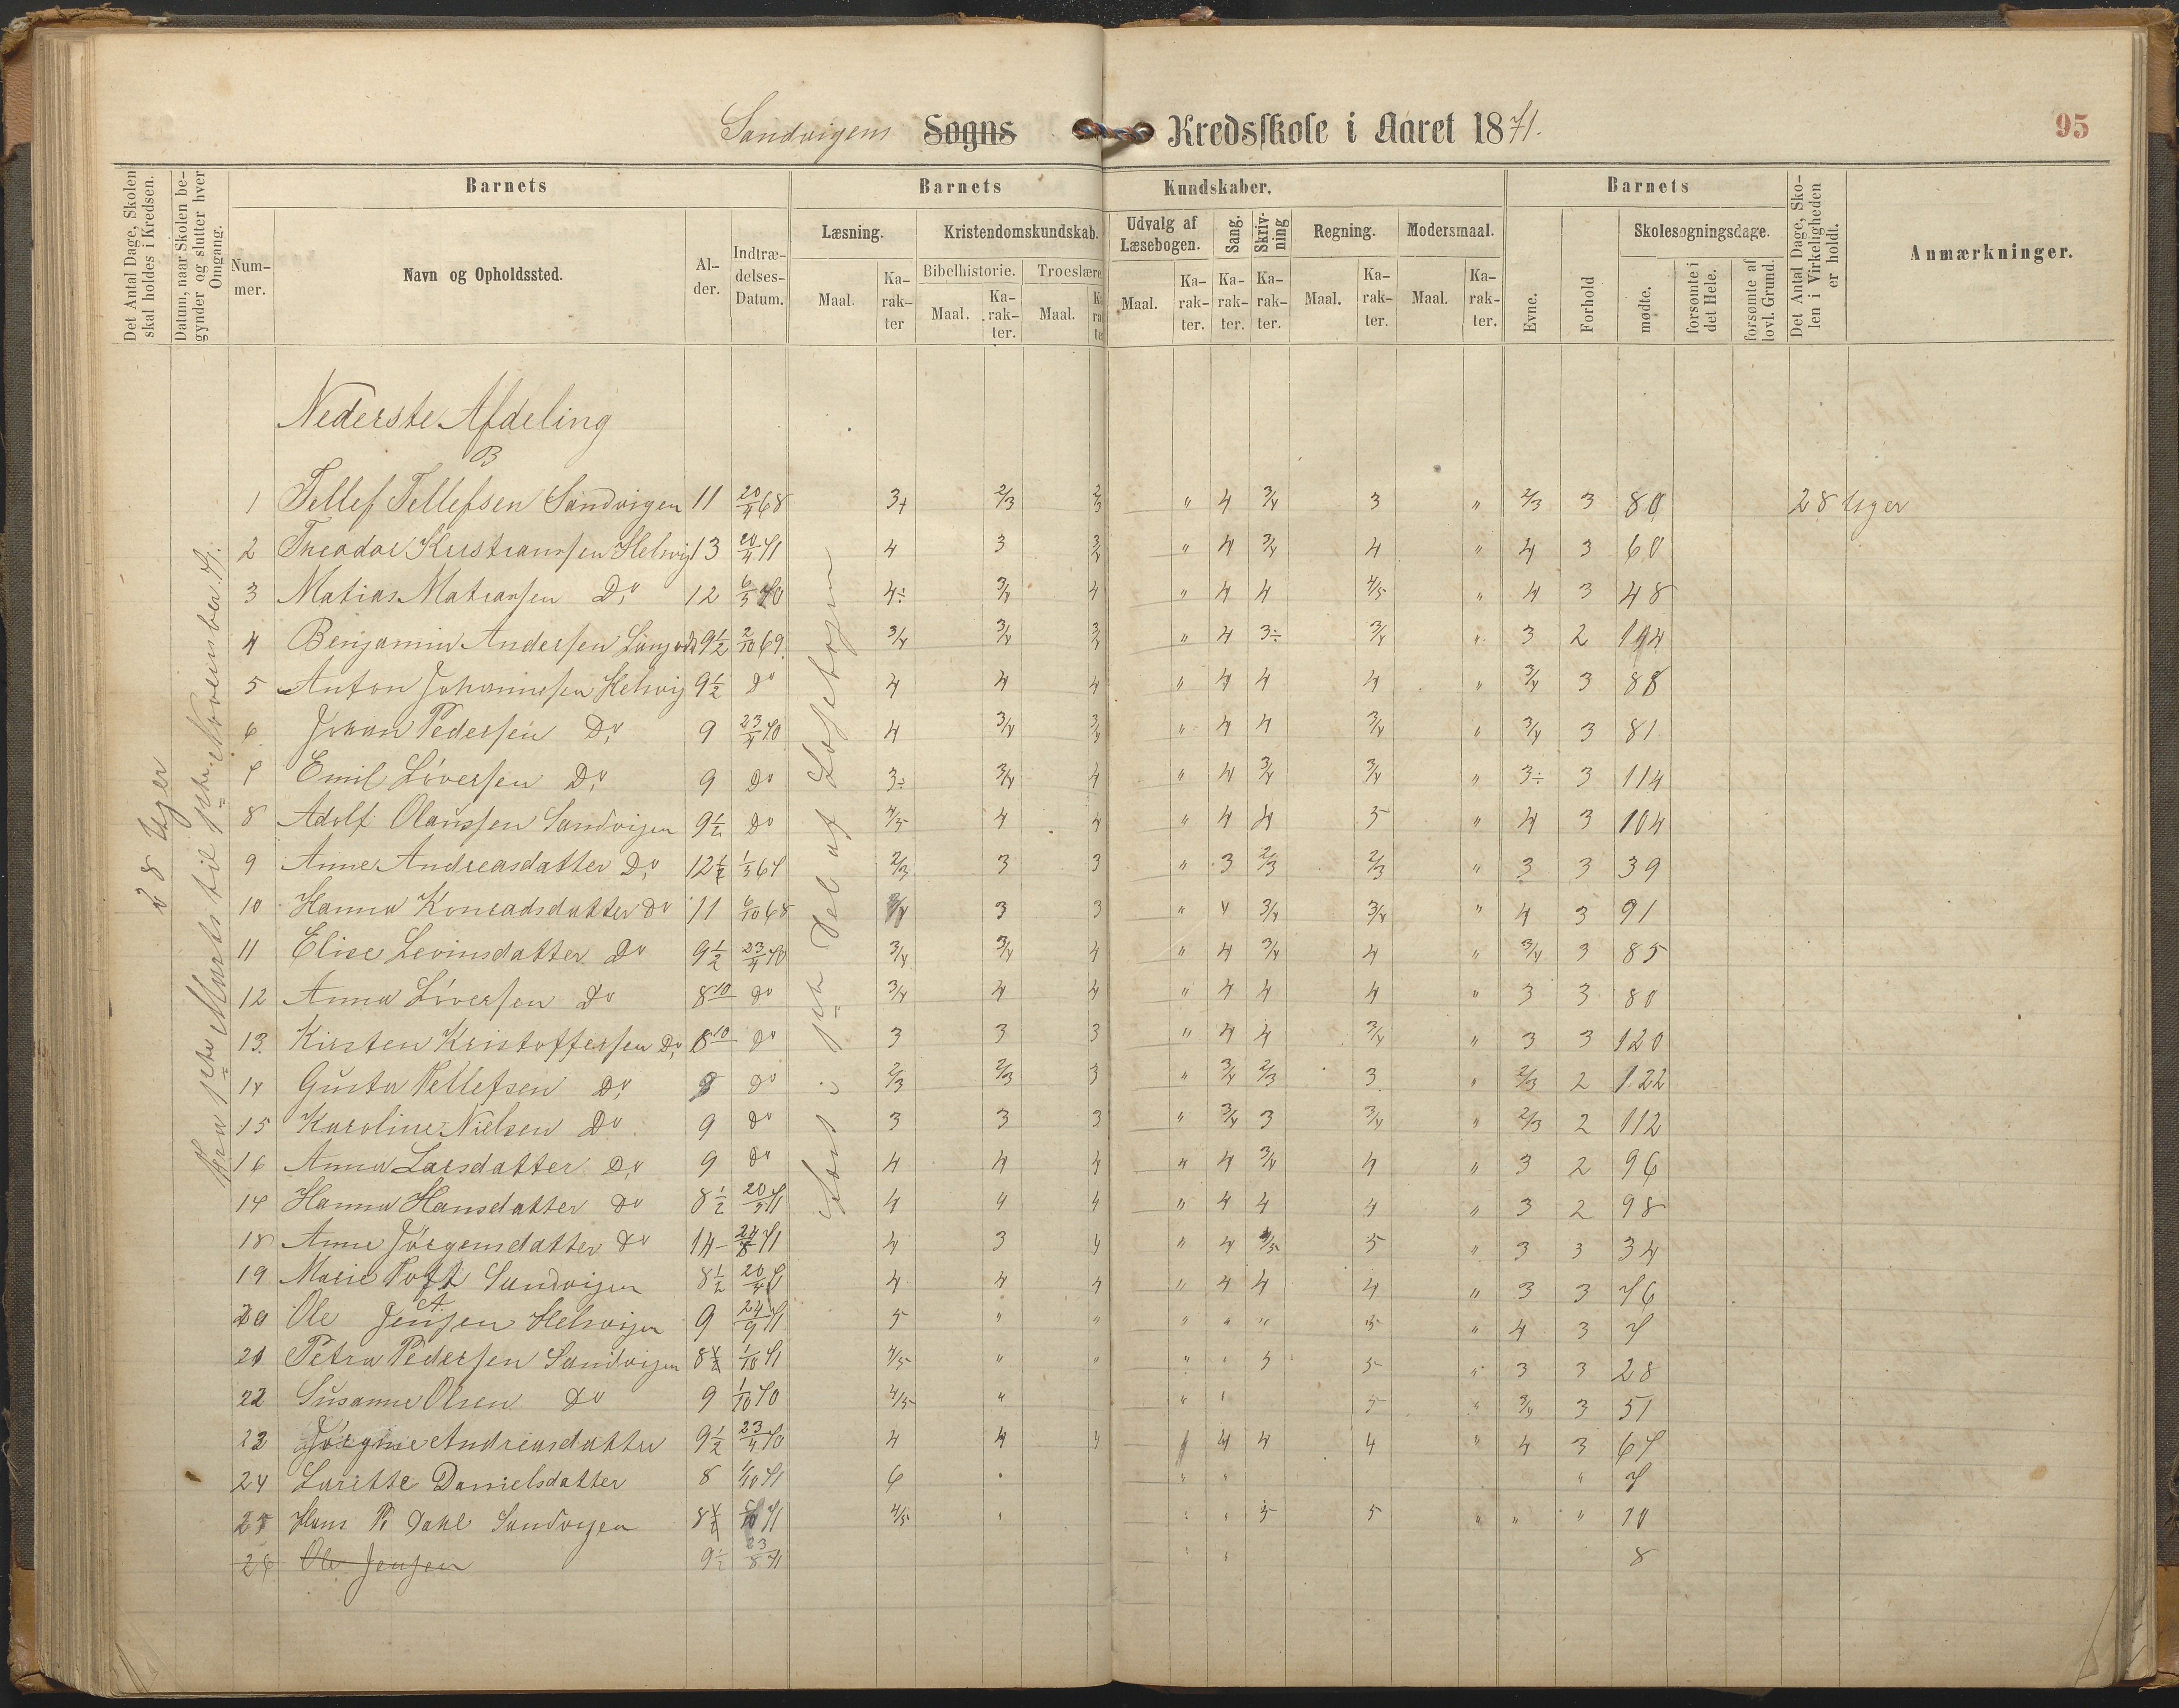 Sandvigens Sogns Kredsskole i Aaret 1871.
95
Det Antal Dage, Skolen skal holdes i Kredsen.
Datum, naar Skolen begynder og slutter hver Omgang.
Barnets
Barnets Kundskaber.
Barnets
Det Antal Dage, Skolen i Virkeligheden er holdt.
Anmærkninger.
Nummer.
Navn og Opholdssted.
Alder.
Indtrædelses-Datum.
Læsning.
Kristendomskundskab.
Udvalg af Læsebogen.
Sang.
Skrivning
Regning.
Modersmaal.
Evne.
Forhold
Skolesøgningsdage.
Bibelhistorie.
Troeslære
Maal.
Karakter
Maal.
Karakter.
Maal.
Maal.
Karakter.
Karakter.
Karakter.
Maal.
Karakter.
Maal.
Karakter.
mødte.
forsømte i det Hele.
forsømte af lovl. Grund.
28 Uger
Fra 1ste Marts til 1ste November 71.
Lært i 1ste Del af Læsebogen
Nederste Afdeling
B
1 Tellef Tellefsen Sandvigen 11 20/4 68 3+ 2/3 2/3 " 4 3/4 3 " 2/3 3 80 28 Uger
2 Theodor Kristiansen Helvig 13 20/4 71 4 3 3/4 " 4 3/4 4 " 4 3 60
3 Matias Matiassen Do 12 6/5 70 4÷ 3/4 4 " 4 4 4/5 " 4 3 48
4 Benjamin Andersen 9 1/2 2/10 69 3/4 3/4 3/4 " 4 3÷ 3/4 " 3 2
5 Anton Johannesen Helvig 9 1/2 Do 4 4 4 " 4 4 4 " 3/4 3 88
6 Johan Pedersen Do 9 23/4 70 4 3/4 3/4 " 4 4 3/4 " 3/4 3 81
7 Emil Siversen Do 9 Do 3÷ 3/4 4 " 4 3/4 3/4 " 3÷ 3 114
8 Adolf Olaussen Sandvigen 9 1/2 Do 4/5 4 4 " 4 4 5 " 4 3 104
9 Anne Andreasdatter Do 12 1/2 1/5 67 2/3 3 3 " 3 2/3 2/3 " 3 3 39
10 Hanna Konradsdatter Do 11 6/10 68 3/4 3 3 " 4 3/4 3/4 " 4 3 91
11 Elise Levinsdatter Do 9 1/2 23/4 70 3/4 3/4 4 " 4 3/4 4 " 3/4 3 85
12 Anna Siversen Do 8 10 Do 3/4 4 4 " 4 4 4 " 3 3 80
13 Kirsten Kristoffersen Do 8 10 Do 3 3 3 " 4 4 3/4 " 3 3 120
14 Gusta Tellefsen Do 9 Do 2/3 2/3 3 " 3/4 2/3 3 " 2/3 2 122
15 Karoline Nielsen Do 9 Do 3 3 3 " 3/4 3 3/4 " 2/3 2 112
16 Anna Larsdatter Do 9 Do 4 4 4 " 4 3/4 4 " 3 2 96
17 Hanna Hansdatter Do 8 1/2 20/5 71 4 4 4 " 4 4 4 " 3 2 98
18 Anne Jørgensdatter Do 14 24/8 71 4 3 4 " 4 4/5 5 " 3 3 34
19 Marie Sandvigen 8 1/2 20/4 71 4 4 4 " 4 4 4 " 3 3 76
20 Ole A. Jensen Helvigen 9 24/9 71 5 " " " " " 5 " 4 3 7
21 Petra Pedersen Sandvigen 8 1/2 1/10 71 4/5 " " " " 5 5 " 3 3 28
22 Susanne Olsen Do 9 1/10 70 4/5 " " " 5 " 3/4 3 51
23 Jørgine Andreasdatter 9 1/2 23/4 70 4 4 4 4 4 4 " 4 3 67
24 Laritte Danielsdatter 8 1/10 71 6 " " " " 7
25 Hans P. Dahl Sandvigen 8 1/2 71 4/5 " " " 5 5 " " " 10
26 Ole Jensen 9 1/2 23/8 71 " " 8